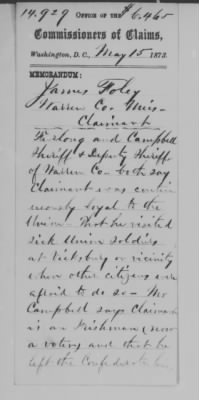 14.929 Office of the $6.465
Commissioners of Claims,
Washington, D.C., May 15 1873.
MEMORANDUM:
James Foley
Warren Co. Miss
Claimant
Furlong and Campbell
Sheriff & Deputy Sheriff
of Warren Co - both say
Claimant was
loyal to the
Union - That he visited
sick Union Soldiers
at Vicksburg or vicinity
when other citizens were
afraid to do so - Mr
Campbell says Claimant
is an Irishman (now
a voter) and that he
left the Confederate